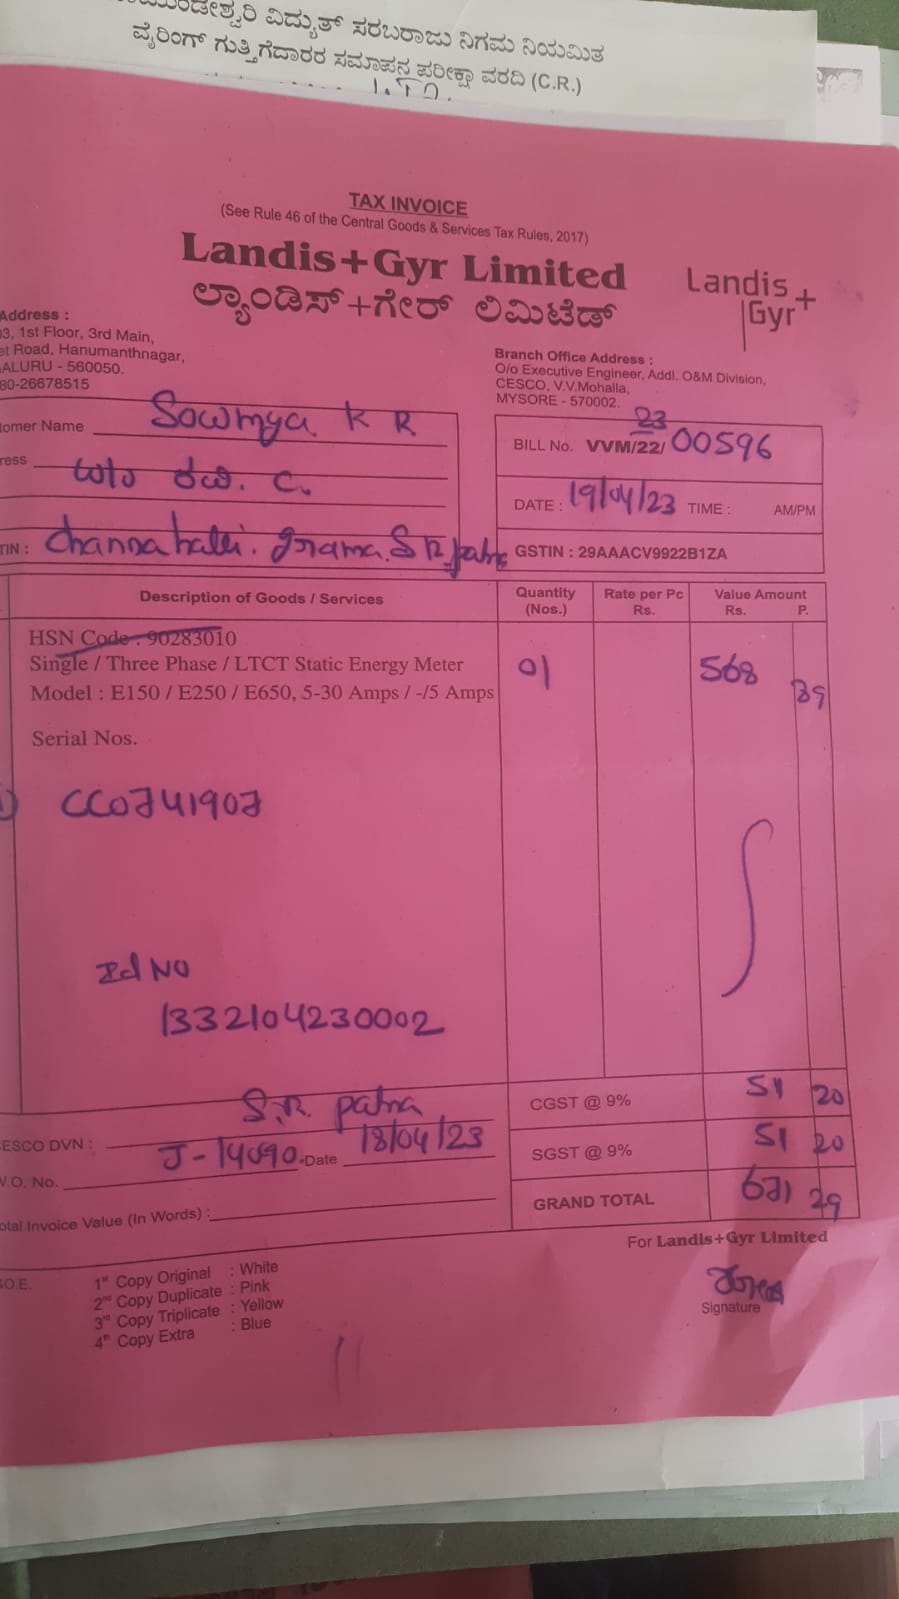 ವಿದ್ಯುತ್ ಸರಬರಾಜು ನಿಗಮ ನಿಯಮಿತ
ವೈರಿಂಗ್ ಗುತ್ತಿಗೆದಾರರ ಸಮಾಪನ ಪರೀಕ್ಷಾ ವರದಿ (C.R.)
TAX INVOICE
(See Rule 46 of the Central Goods & Services Tax Rules, 2017)
Landis+Gyr Limited
ಲ್ಯಾಂಡಿಸ್+ಗೇರ್ ಲಿಮಿಟೆಡ್
Landis+
Gyr
Address :
03, 1st Floor, 3rd Main,
et Road, Hanumanthnagar,
ALURU - 560050.
80-26678515
Branch Office Address :
O/o Executive Engineer, Addl. O&M Division,
CESCO, V.V.Mohalla,
MYSORE - 570002.
tomer Name Sowmya K R
ress W/o ರವಿ. C.
TIN : Channahalli. grama. S R patna
BILL No. VVM/22/ 23 00596
DATE : 19/04/23 TIME : AM/PM
GSTIN : 29AAACV9922B1ZA
Description of Goods / Services Quantity (Nos.) Rate per Pc Rs. Value Amount Rs. P.
HSN Code : 90283010
Single / Three Phase / LTCT Static Energy Meter 01 568 39
Model : E150 / E250 / E650, 5-30 Amps / -/5 Amps
Serial Nos.
1) CC0741907
Id NO
1332104230002
CGST @ 9% 51 20
SGST @ 9% 51 20
GRAND TOTAL 671 29
ESCO DVN : S.R. patna
V.O. No. J-14090 Date 18/04/23
otal Invoice Value (In Words) :
For Landis+Gyr Limited
Signature
.O.E.
1st Copy Original : White
2nd Copy Duplicate : Pink
3rd Copy Triplicate : Yellow
4th Copy Extra : Blue